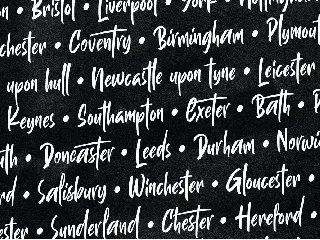 n • Bristol • Liverpool • York • Nottingham
chester • Coventry • Birmingham • Plymout
upon hull • Newcastle upon tyne • Leicester
Keynes • Southampton • Exeter • Bath •
uth • Doncaster • Leeds • Durham • Norwi
rd • Salisbury • Winchester • Gloucester •
ester • Sunderland • Chester • Hereford •